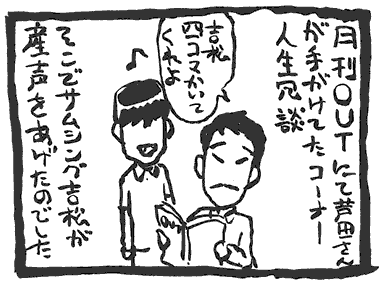 月刊OUTにて芦田さん
が手がけてたコーナー
人生冗談
吉松
四コマかいて
くれよ
そこでサムシング吉松が
産声をあげたのでした